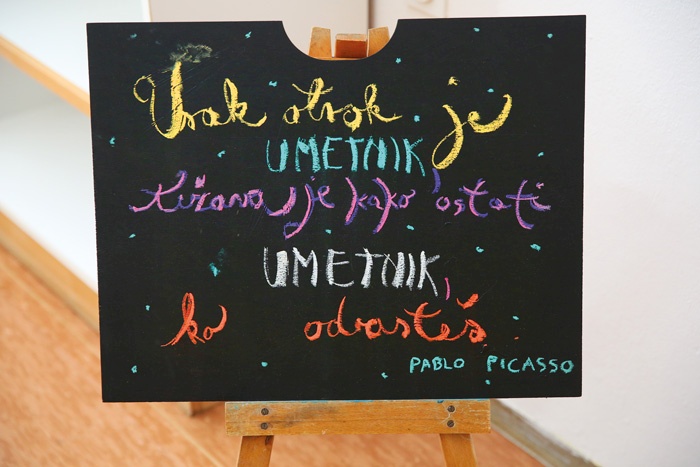 Vsak otrok je
UMETNIK,
Težava je kako ostati
UMETNIK,
ko odrasteš.
PABLO PICASSO